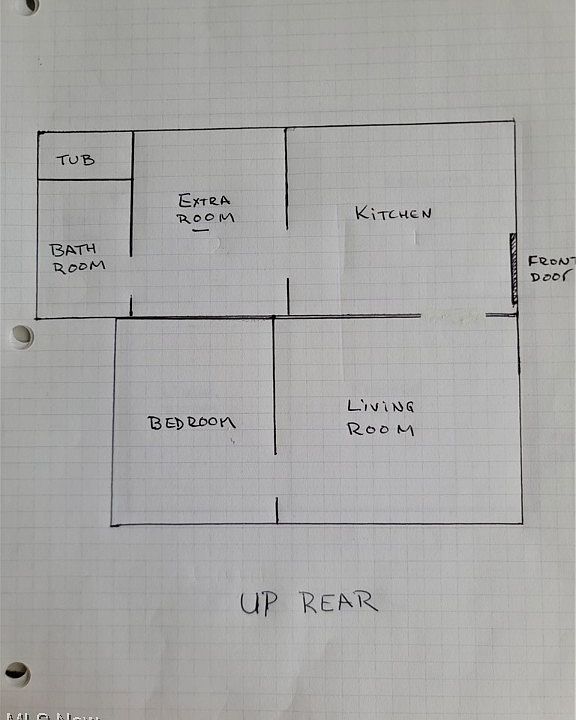 TUB
EXTRA
ROOM
KITCHEN
BATH
ROOM
FRONT
DOOR
BEDROOM
LIVING
ROOM
UP REAR
MLS Now